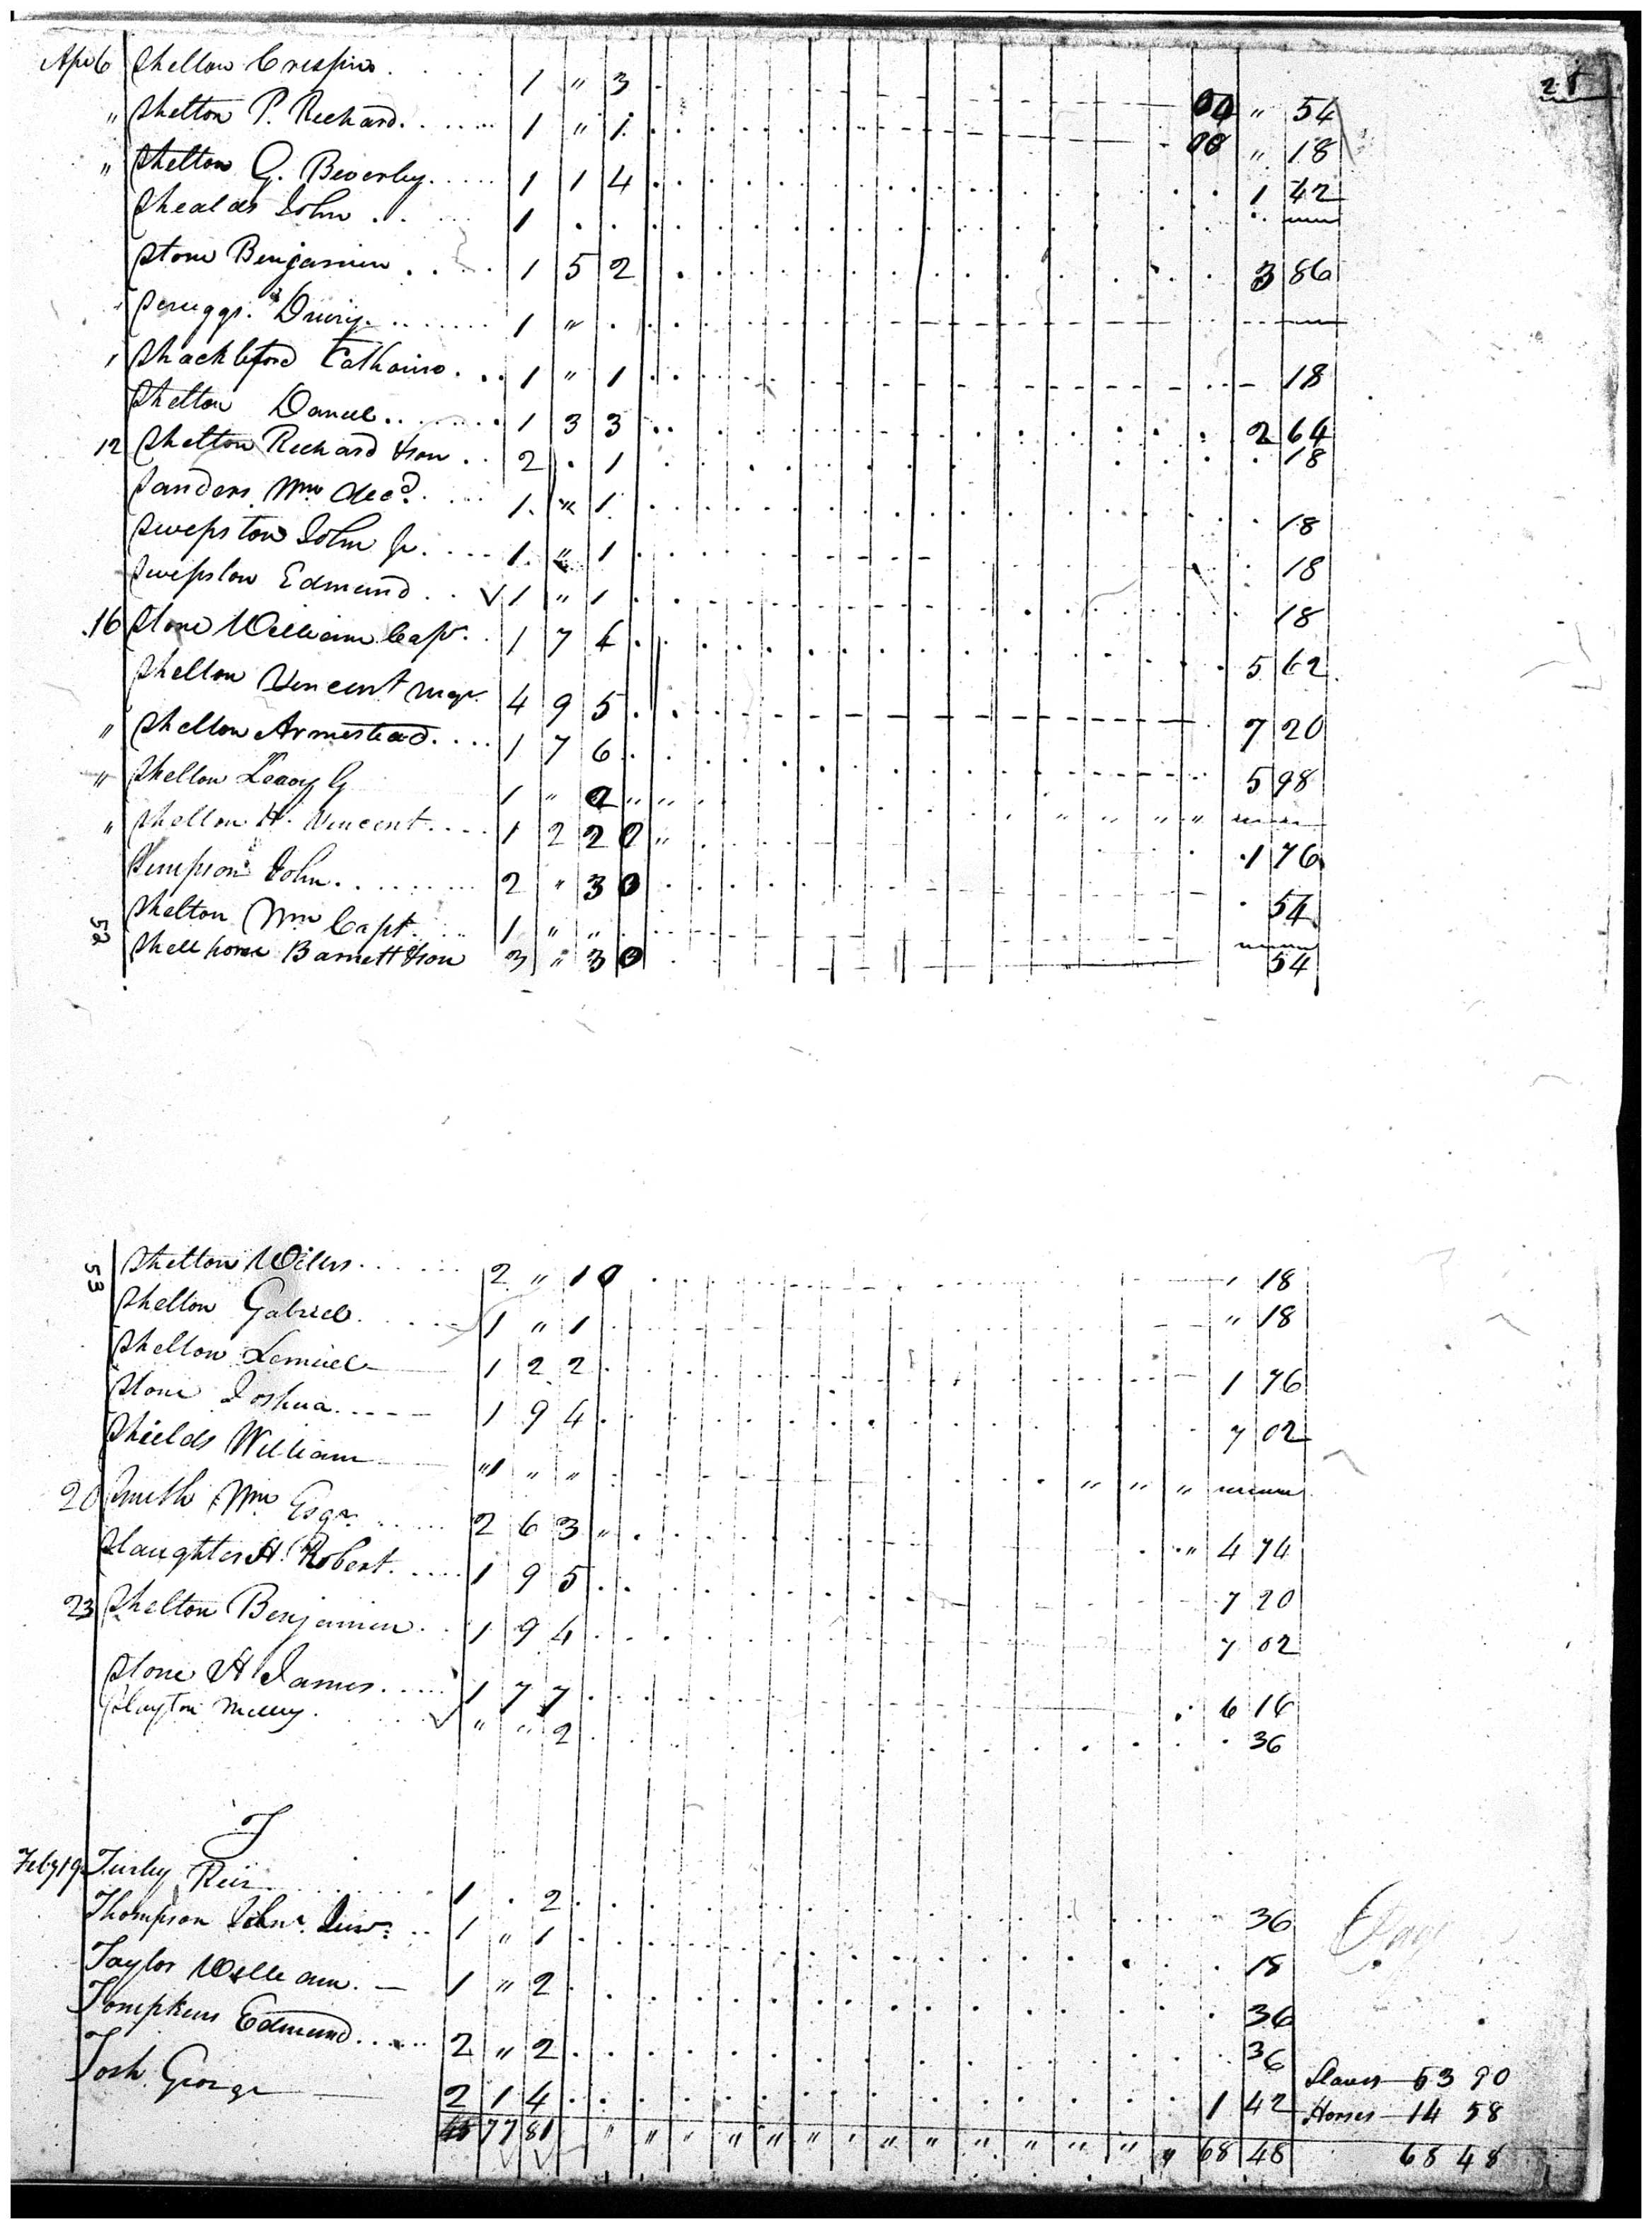 28
Apr 6 Shelton Crespin 1 " 3 54 " 54
" Shelton P. Richard 1 " 1 " 18
" Shelton G. Beverley 1 1 4 1 42
Shealds John 1
Stone Benjamin 1 5 2 3 86
Scruggs Drury 1 "
Shackleford 1 " 1 18
Shelton Daniel 1 3 3 2 64
12 Shelton Richard & son 2 . 1 18
Sanders Wm decd 1 " 1 18
Swepston John Jr. 1 " 1 18
Swepston Edmund √ 1 " 1 18
16 Stone William Capt. 1 7 4 5 62
Shelton Vincent 4 9 5 7 20
" Shelton Armestead 1 7 6 5 98
" Shelton Leroy G 1 "
" Shelton H. Vincent 1 2 2 " 1 76
Simpson John 2 " 3 54
Shelton Wm Capt. 1 " "
52 Shellhorse Barnett & son 3 " 3 54
53 Shelton Willis 2 " 1 18
Shelton Gabriel 1 " 1 " 18
Shelton Lemuel 1 2 2 1 76
Stone Joshua 1 9 4 7 02
Shields William 1 " " " " "
20 Smith Wm Esqr. 2 6 3 " " 4 74
Slaughter H. Robert 1 9 5 7 20
23 Shelton Benjamin 1 9 4 7 02
Stone H James 1 7 7 6 16
Slayton Milley √ " " 2 36
T
Feby 19 Turley 1 . 2 36
Thompson John 1 " 1 18
Taylor William 1 " 2 36
Tompkins Edmund 2 " 2 36
Tosh George 2 1 4 1 42 Slaves 53 90
Horses 14 58
45 77 81 " " " " " " " " " " " " " " 68 48 68 48